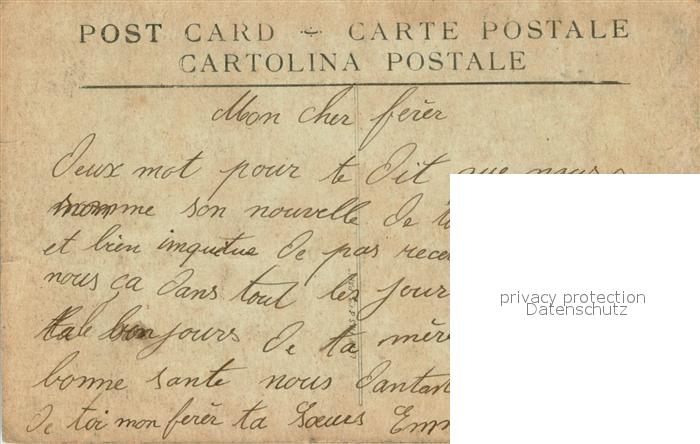 POST CARD ~ CARTE POSTALE
CARTOLINA POSTALE
Mon cher ferèr
Deux mot pour te Dit que nous
somme son nouvelle de
et bien inquitue de pas rece
nous ça dans tout les jour
le bonjours de ta mère
bonne sante nous
De toi mon ferèr ta Sœurs Emm
privacy protection
Datenschutz